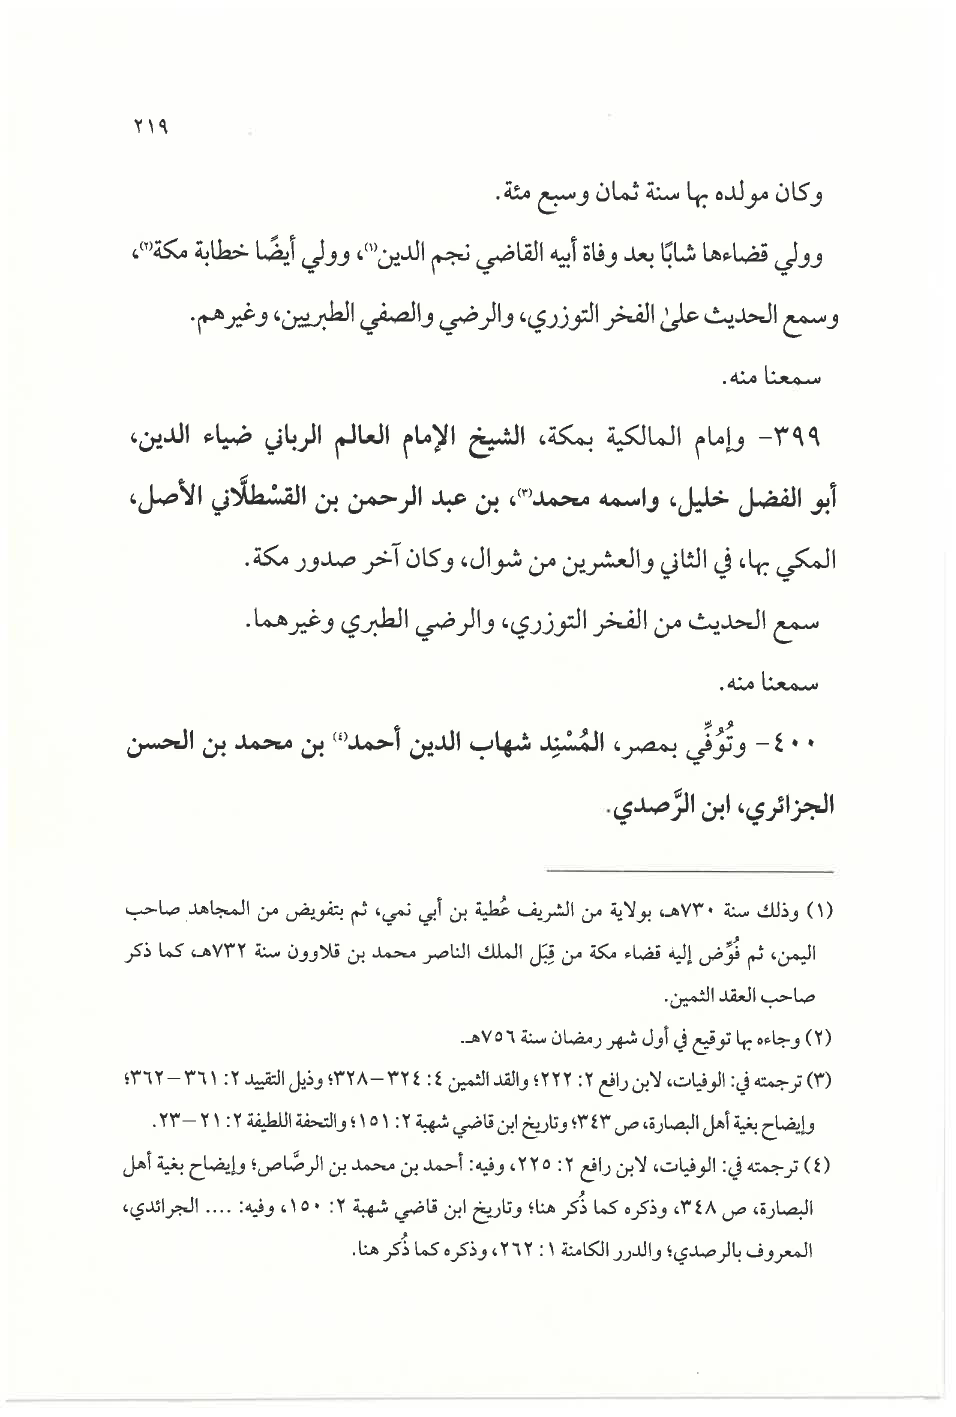 ٢١٩
وكان مولده بها سنة ثمان وسبع مئة.
وولي قضاءها شابًا بعد وفاة أبيه القاضي نجم الدين(١)، وولي أيضًا خطابة مكة(٢)،
وسمع الحديث علىٰ الفخر التوزري، والرضي والصفي الطبريين، وغيرهم.
سمعنا منه.
٣٩٩- وإمام المالكية بمكة، الشيخ الإمام العالم الرباني ضياء الدين،
أبو الفضل خليل، واسمه محمد(٣)، بن عبد الرحمن بن القسْطلَّاني الأصل،
المكي بها، في الثاني والعشرين من شوال، وكان آخر صدور مكة.
سمع الحديث من الفخر التوزري، والرضي الطبري وغيرهما.
سمعنا منه.
٤٠٠- وتُوُفِّي بمصر، المُسْنِد شهاب الدين أحمد(٤) بن محمد بن الحسن
الجزائري، ابن الرَّصدي.
(١) وذلك سنة ٧٣٠هـ، بولاية من الشريف عُطية بن أبي نمي، ثم بتفويض من المجاهد صاحب
اليمن، ثم فُوِّض إليه قضاء مكة من قِبَل الملك الناصر محمد بن قلاوون سنة ٧٣٢هـ، كما ذكر
صاحب العقد الثمين.
(٢) وجاءه بها توقيع في أول شهر رمضان سنة ٧٥٦هـ.
(٣) ترجمته في: الوفيات، لابن رافع ٢: ٢٢٢؛ والقد الثمين ٤: ٣٢٤-٣٢٨؛ وذيل التقييد ٢: ٣٦١-٣٦٢؛
وإيضاح بغية أهل البصارة، ص ٣٤٣؛ وتاريخ ابن قاضي شهبة ٢: ١٥١؛ والتحفة اللطيفة ٢: ٢١-٢٣.
(٤) ترجمته في: الوفيات، لابن رافع ٢: ٢٢٥، وفيه: أحمد بن محمد بن الرصَّاص؛ وإيضاح بغية أهل
البصارة، ص ٣٤٨، وذكره كما ذُكر هنا؛ وتاريخ ابن قاضي شهبة ٢: ١٥٠، وفيه: .... الجرائدي،
المعروف بالرصدي؛ والدرر الكامنة ١: ٢٦٢، وذكره كما ذُكر هنا.